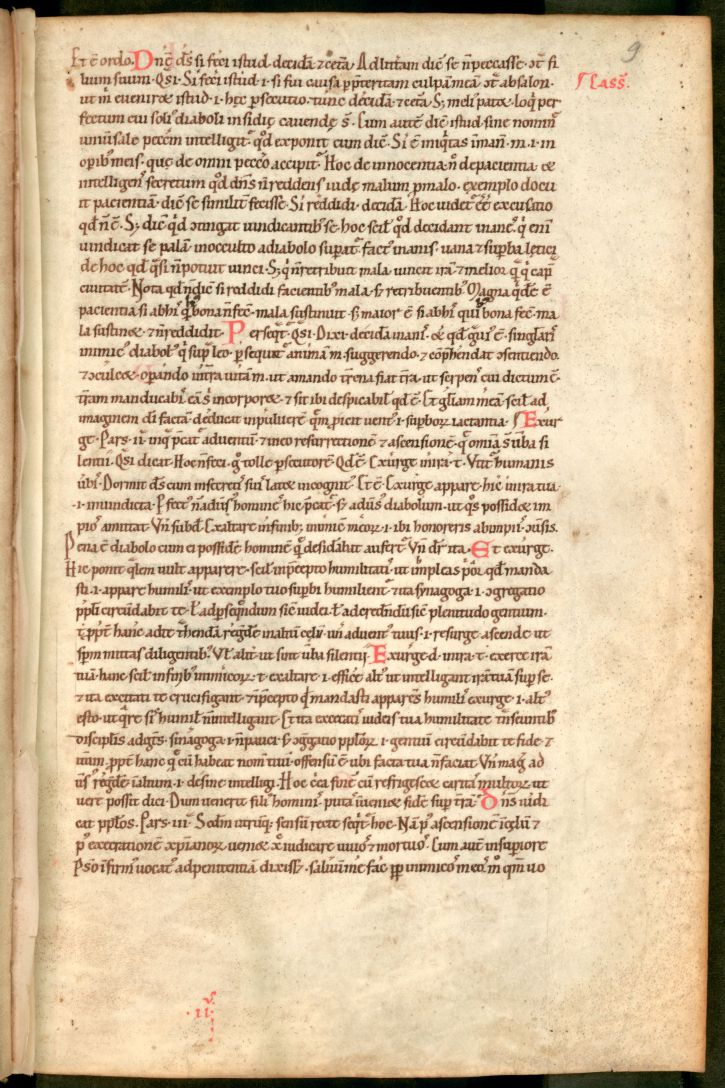 9
Et ē ordo. Dnē dš si feci istud. decidā ⁊ cetā. Ad litterā dicē se n̄ peccasse. ꝯt̄ fi
Cass̄.
lium suum. Qsi. Si feci istud .i. si fui causa p̱p̱teritam culpā meā ꝯt̄ absalon.
ut m̄ eveniret istud .i. hęc p̱secutio. tunc decidā ⁊ cetā. S; meli patet loq̄ per
fectum cui soli diaboli insidię cavendę s̄. Cum autē dicē istud sine nomin̄
universale peccm̄ intelligit. qd̄ exponit cum dicē. Si ē iniq̄tas ī man̄. m. i. in
operib; meis. quę de omni pecc̄o accipit. Hoc de innocentia n̄ de pacientia &
intelligen̄ secretum qd̄ dn̄s n̄ reddens iudę malum p̱ malo. exemplo docu
it pacientiā. dicē se similit̄ fecisse. Si reddidi. decidā. Hoc videt̄ ēē excusatio
qd̄ n̄ ē. S; dic̄ qd̄ ꝯtingat vindicantib; se. hoc scil̄ qd̄ decidant inanes. q̄ enī
vindicat se palā. in occulto a diabolo supat̄. fact̄ inanis. vana ⁊ supba lęticia
de hoc qd̄ q̄si n̄ potuit vinci. S; q̄ n̄ retribuit mala. vincit irā. ⁊ melior q̄ q̄ cap̄
civitatē. Nota qd̄ n̄ dic̄ si reddidi facientib; mala. s; retribuentib;. Magna qd̄ē ē
pacientia si ab hi q̄ bona n̄ fec̄. mala sustinuit. s; maior ē si ab hi qui bona fec̄. ma
la sustinet. ⁊ n̄ reddidit. Perseqt̄. Qsi. Dixi. decidā inanis. & qd̄ gravi ē. singlaris
inimic̄ diabol̄ q̄ sup̄ leo. p̱sequat̄ animā m̄. suggerendo. ⁊ cōp̱hendat ꝯsentiendo.
⁊ ꝯculcet. opando in t̄ra vitā m̄. ut amando t̄rena fiat t̄ra. ut serpens cui dictum ē.
t̄ram manducabis. eā s̄ incorporet. ⁊ sit ibi despicabil̄ qd̄ ē. Et gliam meā. scil̄ ad
imaginem dī factā. deducat in pulverē quē p̱icit vent̄ .i. supborum iactantia. Exur
ge. Pars .ii. in q̄ p̱cat̄ adventū. ⁊ in eo resurrectionē ⁊ ascensionē. q̄ omīa s̄ verba si
lentii. Qsi dicat. Hoc n̄ feci. ḡ tolle p̱secutorē. Qd̄ ē. Exurge in ira. t. Utit̄ humanis
ubis. Dormit dš cum in secretis suis latet incognit̄. Et ē. Exurge appare. hic in ira tua
.i. in vindicta. Pfect̄ n̄ adv̄sus homines hic p̱cat̄. s; adv̄sus diabolum. ut q̄s possidet im
pios amittat. Un̄ subd̄. Exaltare in finib; inimic̄ meor̄ .i. ibi honoreris ab impiis ꝯv̄sis.
Pena ē diabolo cum ei possidē hominē q̄ desidabat aufert̄. Un̄ dr̄ ita. Et exurge.
Hic ponit q̄lem vult apparere. scil̄ in p̱cepto humilitatis. ut impleas p̱or qd̄ manda
sti .i. appare humilis. ut exemplo tuo supbi humilient̄. ⁊ ita synagoga .i. ꝯgregatio
ppli circūdabit te. l̄ ad p̱seq̄ndum sic̄ iudei. l̄ ad credendū sic̄ plenitudo gentium.
⁊ ppt̄ hanc ad te t̄hendā. regrēdē in altum celū. un̄ advent̄ tuus .i. resurge ascende ut
sp̄m mittas diligentib;. Vl̄ alit̄. ut sint v̄ba silentii. Exurge. d. in ira. t. exerce irā
tuā. hanc scil̄ in finib; inimicor̄. t. exaltare .i. effice alt̄. ut intelligant irā tuā sup se.
⁊ ita excecati te crucifigant. ⁊ in p̱cepto q̄ mandasti apparens humilis exurge .i. alt̄
esto. ut q̄re sis humil̄ n̄ intelligant. Et ita excecatis iudeis tua humilitate t̄nseuntib;
disciplis ad gn̄tes. sinagoga .i. n̄ pauci. s; ꝯgregatio pplor̄ .i. gentiū circūdabit te fide. ⁊
itūm. ppt̄ hanc q̄ cū habeat nom̄ tuū. offensū ē. ubi facta tua n̄ faciat. Un̄ mag̃ ad
v̄s; regrēdē in altum .i. desine intelligi. Hoc circa finē cū refrigescet caritas multor̄. ut
vere possit dici. Dum venerit filī hominis. putas inveniet fidē sup̱ t̄rā. Dn̄s iudi
cat pplos. Pars .iii. Scdm utrūq; sensū recte seqt̄ hoc. Nā p̄ ascensionē in celū ⁊
p̄ execrationē xp̄ianor̄ veniet x̄ iudicare vivos ⁊ mortuos. Cum autē in superiore
Ps̄o infirmos vocat̄ ad penitentiā dixisset. salvū me fac. p̱p̱ inimicos meos. m̄ qm̄ vo
.ii.